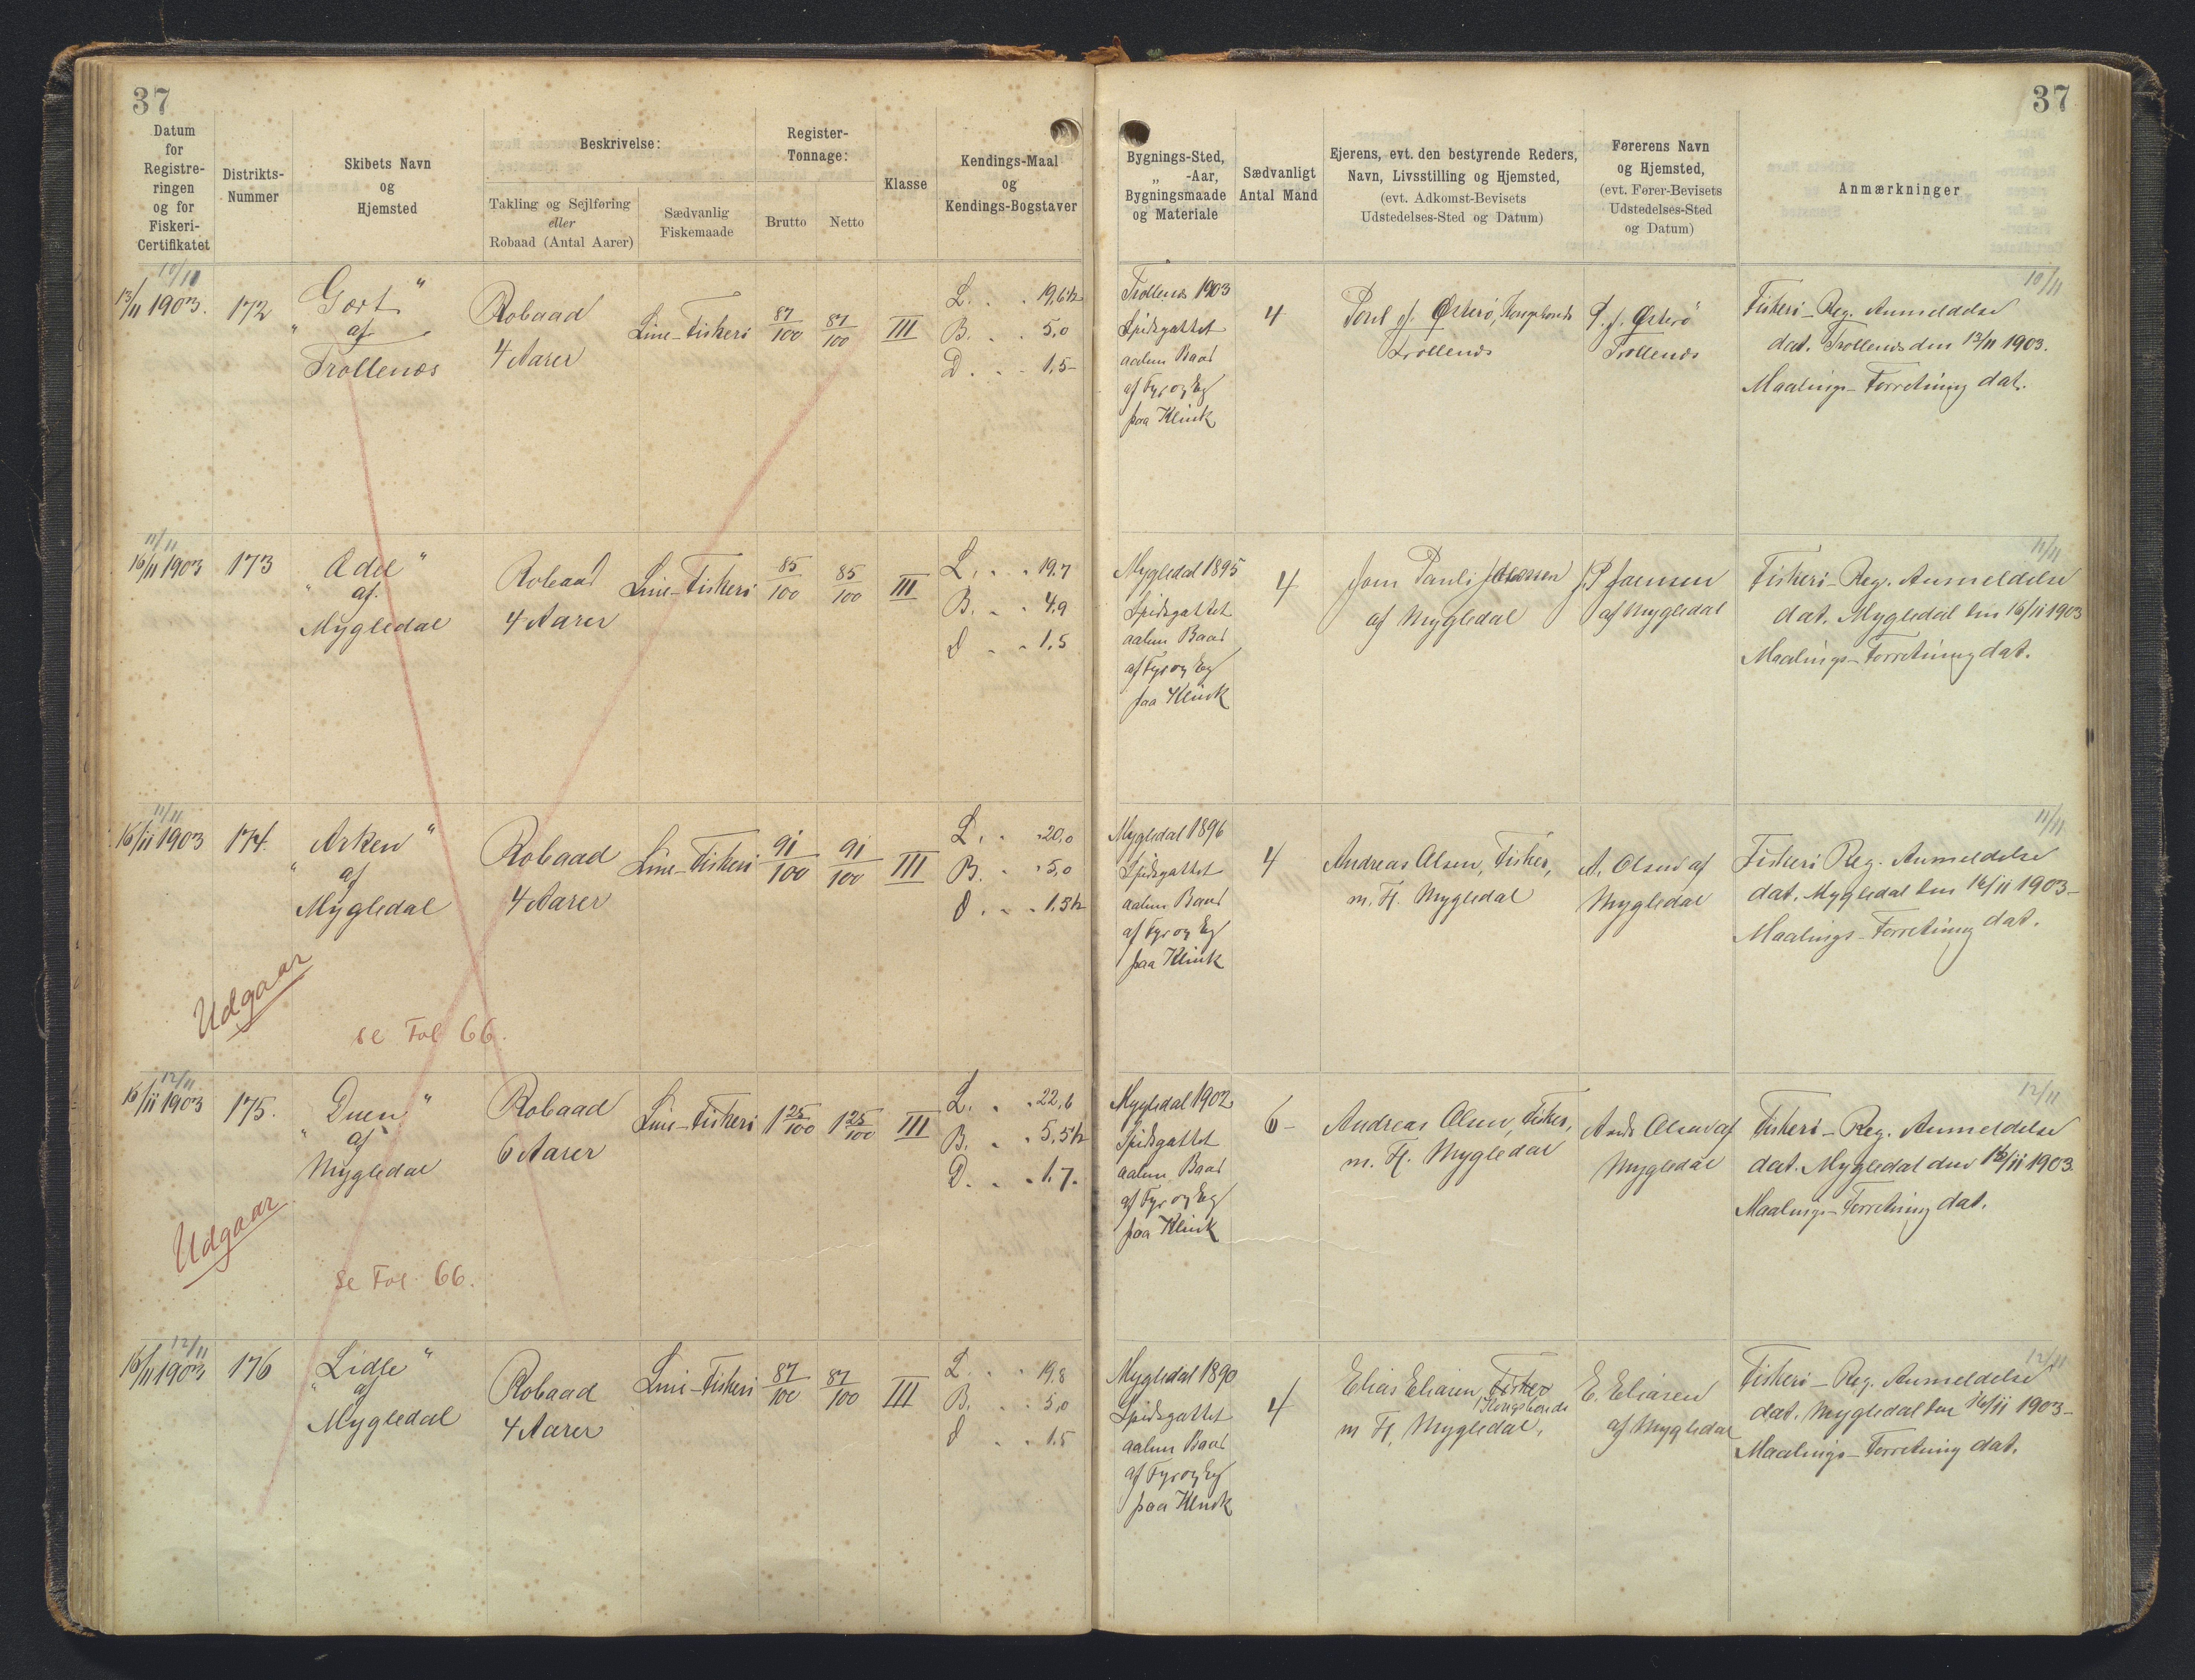 37
37
Datum
for
Registre-
ringen
og for
Fiskeri-
Certifikatet
Distrikts-
Nummer
Skibets Navn
og
Hjemsted
Beskrivelse:
Takling og Sejlføring
eller
Robaad (Antal Aarer)
Sædvanlig
Fiskemaade
Register-
Tonnage:
Brutto
Netto
Klasse
Kendings-Maal
og
Kendings-Bogstaver
Bygnings-Sted,
„ -Aar,
Bygningsmaade
og Materiale
Sædvanligt
Antal Mand
Ejerens, evt. den bestyrende Reders,
Navn, Livsstilling og Hjemsted,
(evt. Adkomst-Bevisets
Udstedelses-Sted og Datum)
Førerens Navn
og Hjemsted,
(evt. Fører-Bevisets
Udstedelses-Sted
og Datum)
Anmærkninger
10/11
13/11 1903.
172
„Gort“
af
Trollenæs
Robaad
4 Aarer
Line-Fiskeri
87/100
87/100
III
L. . . 19,6½
B. . . 5,0
D. . . 1,5
Trollenæs 1903
Spidsgattet
aaben Baad
af Fyr og Eg
paa Klink
4
Poul J. Østerø, Kongsbonde
Trollenæs
P. J. Østerø
Trollenæs
10/11
Fiskeri-Reg. Anmeldelse
dat. Trollenæs den 13/11 1903.
Maalings-Forretning dat.
11/11
16/11 1903
173
„Adel“
af
Mygledal
Robaad
4 Aarer
Line-Fiskeri
85/100
85/100
III
L. . . 19.7
B. . . 4.9
D . . 1.5
Mygledal 1895
Spidsgattet
aaben Baad
af Fyr og Eg
paa Klink
4
Joen Pauli Joensen
af Mygledal
J. P. Joensen
af Mygledal
11/11
Fiskeri-Reg. Anmeldelse
dat. Mygledal den 16/11 1903
Maalings-Forretning dat.
11/11
16/11 1903
174.
„Arken“
af
Mygledal
Robaad
4 Aarer
Line-Fiskeri
91/100
91/100
III
L. . . 20,0
B. . . 5,0
D. . . 1.5½
Mygledal 1896
Spidsgattet
aaben Baad
af Fyr og Eg
paa Klink
4
Andreas Olsen, Fisker,
m. H. Mygledal
A. Olsen af
Mygledal
11/11
Fiskeri Reg. Anmeldelse
dat. Mygledal den 16/11 1903-
Maalings-Forretning dat.
Udgaar
se Fol 66.
12/11
16/11 1903
175.
„Duen“
af
Mygledal
Robaad
6 Aarer
Line-Fiskeri
1 25/100
1 25/100
III
L. . . 22,6
B. . . 5,5½
D. . . 1.7.
Mygledal 1902
Spidsgattet
aaben Baad
af Fyr og Eg
paa Klink
6-
Andreas Olsen, Fisker,
m. H. Mygledal
Ands Olsen af
Mygledal
12/11
Fiskeri-Reg. Anmeldelse
dat. Mygledal den 16/11 1903
Maalings-Forretning dat.
Udgaar
Se Fol. 66.
12/11
16/11 1903
176
„Lidle“
af
Mygledal
Robaad
4 Aarer
Line-Fiskeri
87/100
87/100
III
L. . . 19,8
B. . . 5,0
D . . 1.5
Mygledal 1890
Spidsgattet
aaben Baad
af Fyr og Eg
paa Klink
4
Elias Eliasen, Fisker
Kongsbonde
m H, Mygledal,
E. Eliasen
af Mygledal
12/11
Fiskeri-Reg. Anmeldelse
dat. Mygledal den 16/11 1903-
Maalings-Forretning dat.